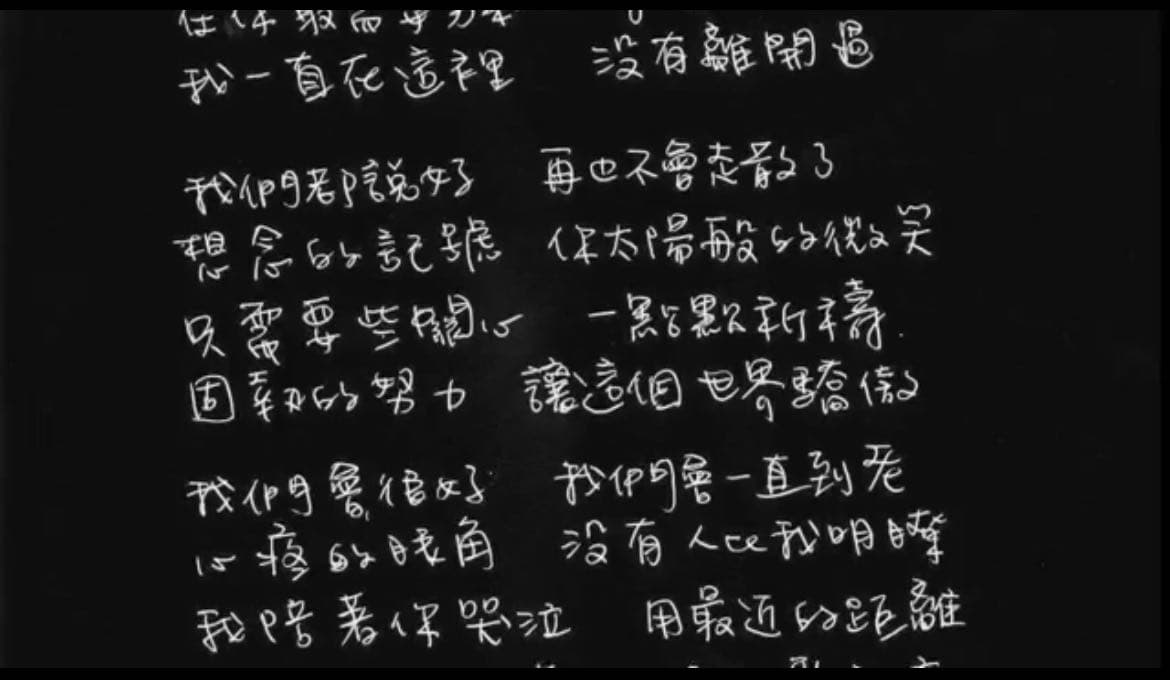 在你最需要力
我一直在這裡 沒有離開過
我們都說好 再也不會走散了
想念的記號 你太陽般的微笑
只需要些關心 一點點祈禱
固執的努力 讓這個世界驕傲
我們會很好 我們會一直到老
心疼的眼角 沒有人比我明瞭
我陪著你哭泣 用最近的距離